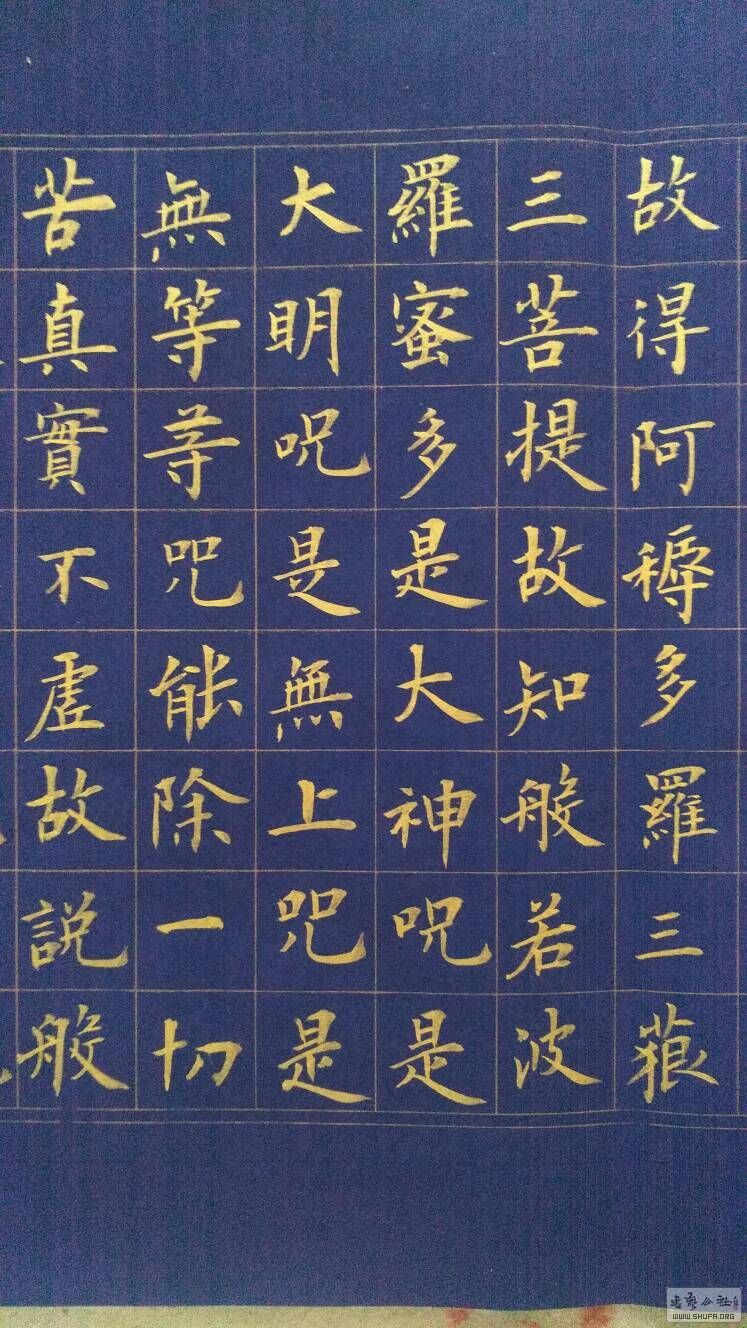 故得阿耨多羅三藐
三菩提故知般若波
羅蜜多是大神呪是
大明呪是無上咒是
無等等咒能除一切
苦真實不虛故說般
WWW.SHUFA.ORG